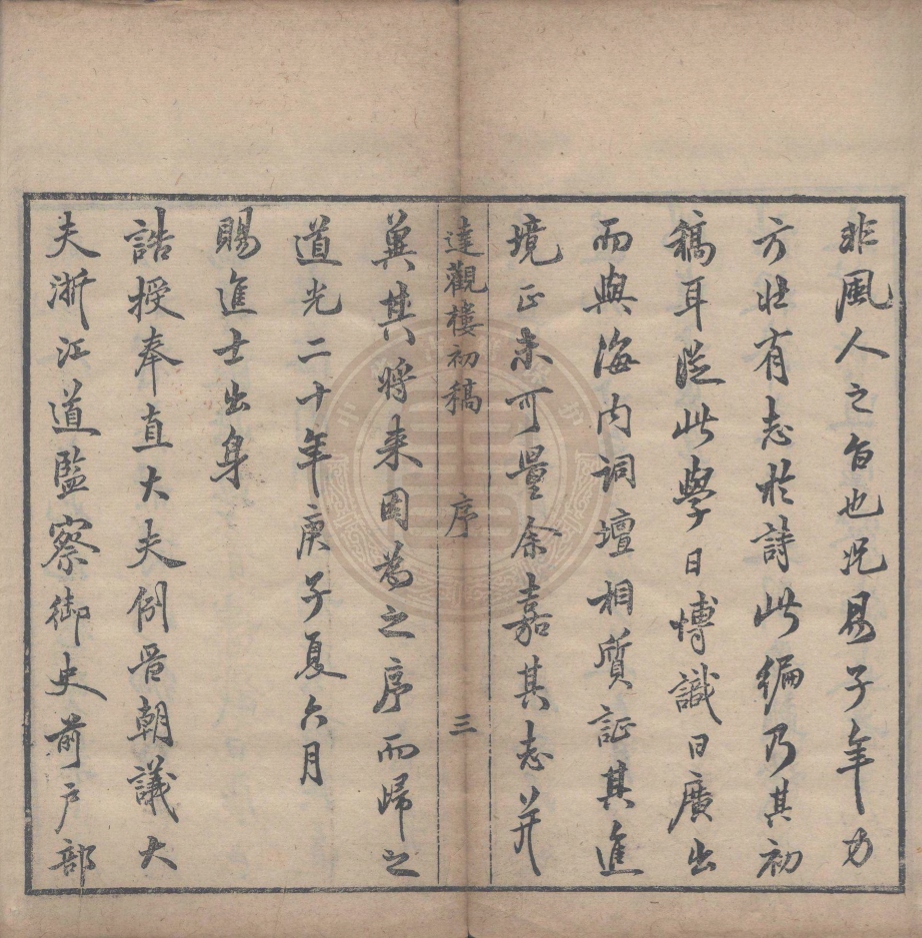 非風人之旨也況易子年力
方壯有志於詩此編乃其初
稿耳從此學日博識日廣出
而與海内詞壇相質証其進
境正未可量余嘉其志并
達觀樓初稿　序　三
冀其將来因為之序而歸之
道光二十年庚子夏六月
賜進士出身
誥授奉直大夫例晉朝議大
夫浙江道監察御史前户部